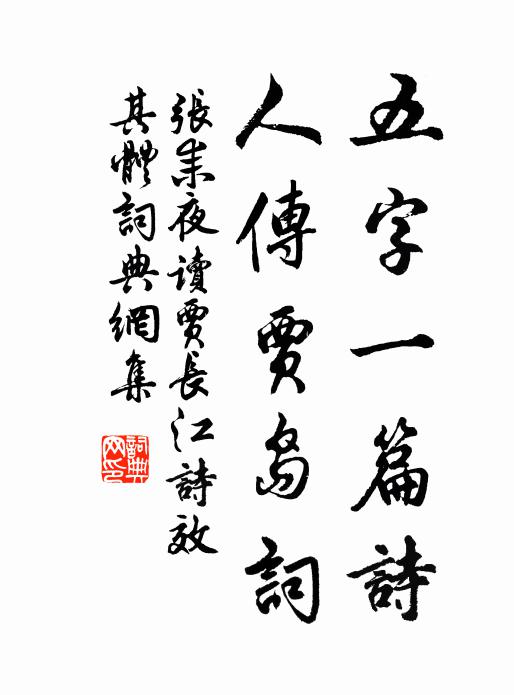 五字一篇詩
人傳賈島詞
張耒夜讀賈長江詩效
其體詞典網集
詞典
网印